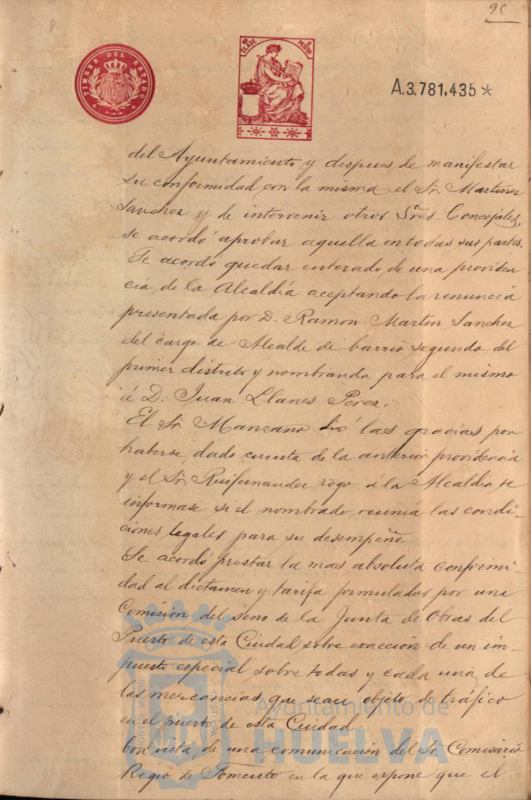 8
95
TIMBRE DEL ESTADO
A.3.781,435*
del Ayuntamiento y despues de manifestar
su conformidad con la misma el Sr. Martinez
Sanchez y de intervenir otros Sres. Concejales,
se acordó aprobar aquella en todas sus partes.
Se acordó quedar enterado de una providen-
cia de la Alcaldía aceptando la renuncia
presentada por D. Ramon Martin Sanchez
del cargo de Alcalde de barrio segundo del
primer distrito y nombrando para el mismo
á D. Juan Llanes Perez.
El Sr. Manzano dió las gracias por
haberse dado cuenta de la anterior providencia
y el Sr. Ruifernandez rogó á la Alcaldía se
informase si el nombrado reunia las condi-
ciones legales para su desempeño.
Se acordó prestar la mas absoluta conformi-
dad al dictamen y tarifa formulados por una
Comisión del seno de la Junta de Obras del
Puerto de esta Ciudad sobre exacción de un im-
puesto especial sobre todas y cada una de
las mercancias que sean objeto de tráfico
en el puerto de esta Ciudad.
Con vista de una comunicación del Sr. Comisario
Regio de Fomento en la que expone que el
Ayuntamiento de
HUELVA